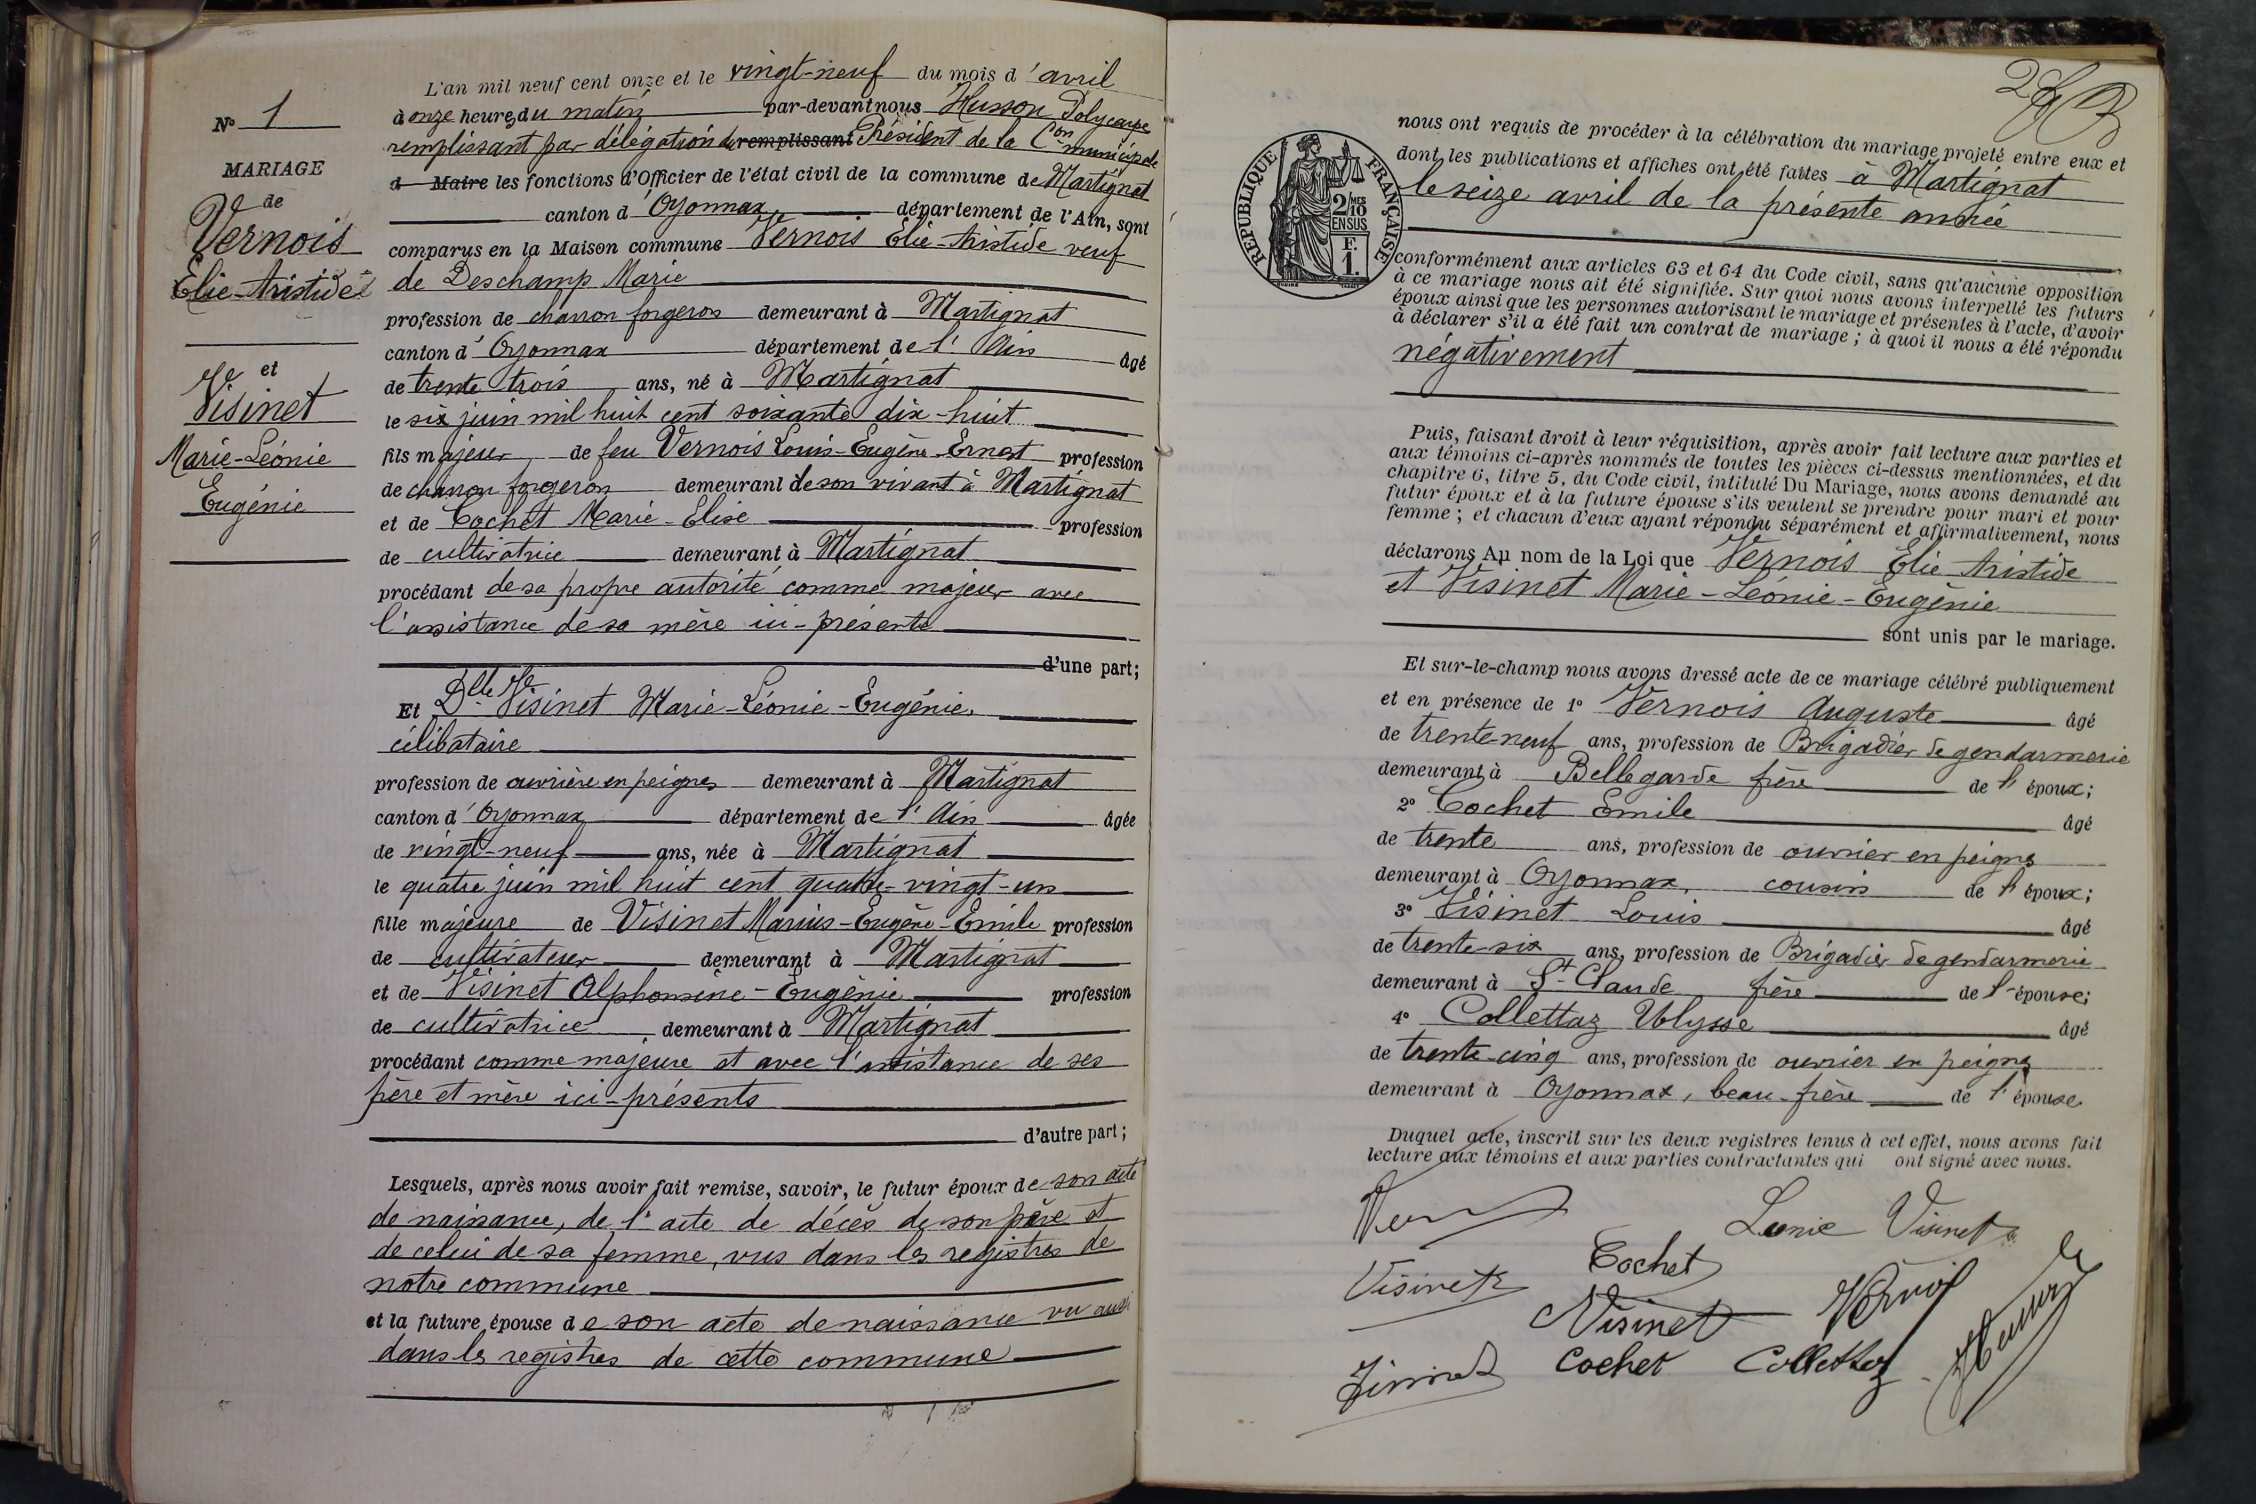 L'an mil neuf cent onze et le vingt-neuf du mois d'avril
à onze heures du matin par-devant nous Husson Polycarpe
remplissant par délégation de remplissant Président de la Con municipale
d Maire les fonctions d'Officier de l'état civil de la commune de Martignat
canton d'Oyonnax, département de l'Ain, sont
comparus en la Maison commune Vernois Elie-Aristide veuf
de Deschamp Marie
profession de charron forgeron demeurant à Martignat
canton d'Oyonnax département de l'Ain âgé
de trente trois ans, né à Martignat
le six juin mil huit cent soixante dix-huit
fils majeur de feu Vernois Louis-Eugène-Ernest profession
de charron forgeron demeurant de son vivant à Martignat
et de Cochet Marie-Elise profession
de cultivatrice demeurant à Martignat
procédant de sa propre autorité comme majeur avec
l'assistance de sa mère ici-présente
d'une part;
Et Dlle Ve Visinet Marie-Léonie-Eugénie,
célibataire
profession de ouvrière en peignes demeurant à Martignat
canton d'Oyonnax département de l'Ain âgée
de vingt-neuf ans, née à Martignat
le quatre juin mil huit cent quatre-vingt-un
fille majeure de Visinet Marius-Eugène-Emile profession
de cultivateur demeurant à Martignat
et de Visinet Alphonsine-Eugénie profession
de cultivatrice demeurant à Martignat
procédant comme majeure et avec l'assistance de ses
père et mère ici-présents
d'autre part;
Lesquels, après nous avoir fait remise, savoir, le futur époux de son acte
de naissance, de l'acte de décès de son père et
de celui de sa femme, vus dans les registres de
notre commune
et la future épouse de son acte de naissance vu aussi
dans les registres de cette commune
No 1
MARIAGE
de
Vernois
Elie-Aristide
et
Ve
Visinet
Marie-Léonie
Eugénie
RÉPUBLIQUE FRANÇAISE
2/10 MES
EN SUS
F.
1.
nous ont requis de procéder à la célébration du mariage projeté entre eux et
dont les publications et affiches ont été faites à Martignat
le seize avril de la présente année
conformément aux articles 63 et 64 du Code civil, sans qu'aucune opposition
à ce mariage nous ait été signifiée. Sur quoi nous avons interpellé les futurs
époux ainsi que les personnes autorisant le mariage et présentes à l'acte, d'avoir
à déclarer s'il a été fait un contrat de mariage; à quoi il nous a été répondu
négativement
Puis, faisant droit à leur réquisition, après avoir fait lecture aux parties et
aux témoins ci-après nommés de toutes les pièces ci-dessus mentionnées, et du
chapitre 6, titre 5, du Code civil, intitulé Du Mariage, nous avons demandé au
futur époux et à la future épouse s'ils veulent se prendre pour mari et pour
femme; et chacun d'eux ayant répondu séparément et affirmativement, nous
déclarons Au nom de la Loi que Vernois Elie Aristide
et Visinet Marie-Léonie-Eugénie
sont unis par le mariage.
Et sur-le-champ nous avons dressé acte de ce mariage célébré publiquement
et en présence de 1o Vernois Auguste âgé
de trente-neuf ans, profession de Brigadier de gendarmerie
demeurant à Bellegarde frère de l'époux;
2o Cochet Emile âgé
de trente ans, profession de ouvrier en peignes
demeurant à Oyonnax, cousin de l'époux;
3o Visinet Louis âgé
de trente-six ans, profession de Brigadier de gendarmerie
demeurant à St Claude frère de l'épouse;
4o Collettaz Ulysse âgé
de trente-cinq ans, profession de ouvrier en peignes
demeurant à Oyonnax, beau-frère de l'épouse
Duquel acte, inscrit sur les deux registres tenus à cet effet, nous avons fait
lecture aux témoins et aux parties contractantes qui ont signé avec nous.
Léonie Visinet
Cochet
Visinet
Visinet
Vernois
Cochet
Collettaz